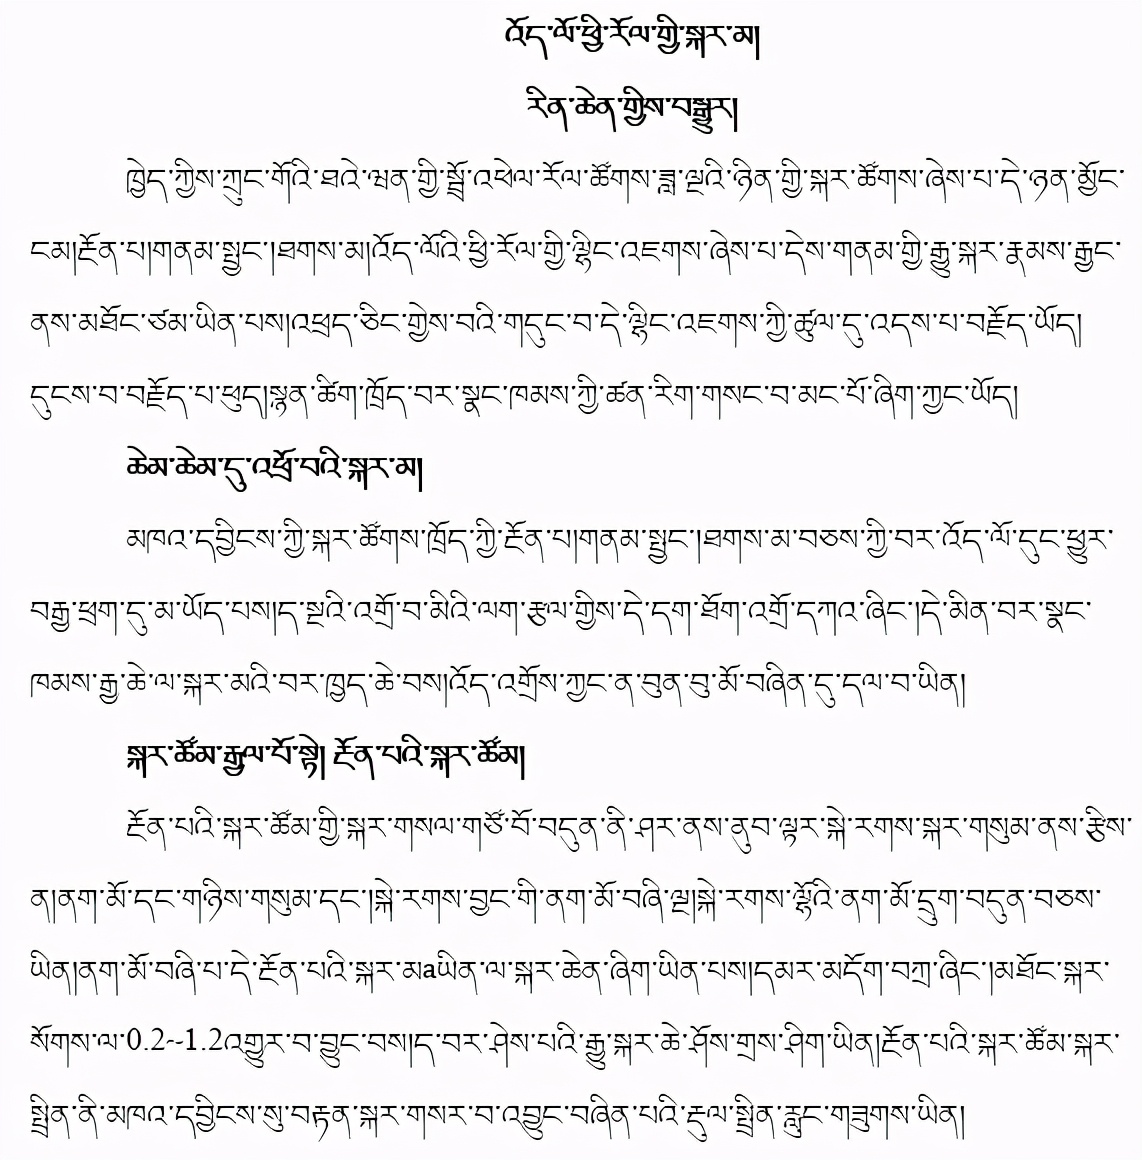 འོད་ལོ་ཕྱི་རོལ་གྱི་སྐར་མ།
རིན་ཆེན་གྱིས་བསྒྱུར།
ཁྱེད་ཀྱིས་ཀྲུང་གོའི་ཐའེ་ཝན་གྱི་སྦྲོ་འཕེལ་རོལ་ཚོགས་ཟླ་ལྔའི་ཉིན་གྱི་སྐར་ཚོགས་ཞེས་པ་དེ་ཉན་མྱོང་
ངམ།རྔོན་པ།གནམ་སྤྱང་།ཐགས་མ།འོད་ལོའི་ཕྱི་རོལ་གྱི་ལྷིང་འཇགས་ཞེས་པ་དེས་གནམ་གྱི་རྒྱུ་སྐར་རྣམས་རྒྱང་
ནས་མཐོང་ཙམ་ཡིན་པས།འཕྲད་ཅིང་གྱེས་བའི་གདུང་བ་དེ་ལྷིང་འཇགས་ཀྱི་ཚུལ་དུ་འདས་པ་བརྗོད་ཡོད།
དུངས་བ་བརྗོད་པ་ཕུད།སྙན་ཚིག་ཁྲོད་བར་སྣང་ཁམས་ཀྱི་ཚན་རིག་གསང་བ་མང་པོ་ཞིག་ཀྱང་ཡོད།
ཆེམ་ཆེམ་དུ་འཕྲོ་བའི་སྐར་མ།
མཁའ་དབྱིངས་ཀྱི་སྐར་ཚོགས་ཁྲོད་ཀྱི་རྔོན་པ།གནམ་སྤྱང་།ཐགས་མ་བཅས་ཀྱི་བར་འོད་ལོ་དུང་ཕྱུར་
བརྒྱ་ཕྲག་དུ་མ་ཡོད་པས།ད་སྔའི་འགྲོ་བ་མིའི་ལག་རྩལ་གྱིས་དེ་དག་ཐོག་འགྲོ་དཀའ་ཞིང་།དེ་མིན་བར་སྣང་
ཁམས་རྒྱ་ཆེ་ལ་སྐར་མའི་བར་ཁྱད་ཆེ་བས།འོད་འགྲོས་ཀྱང་ན་བུན་བུ་མོ་བཞིན་དུ་དལ་བ་ཡིན།
སྐར་ཚོམ་རྒྱལ་པོ་སྟེ། རྔོན་པའི་སྐར་ཚོམ།
རྔོན་པའི་སྐར་ཚོམ་གྱི་སྐར་གསལ་གཙོ་བོ་བདུན་ནི་ཤར་ནས་ནུབ་ལྟར་སྐེ་རགས་སྐར་གསུམ་ནས་རྩིས་
ན།ནག་མོ་དང་གཉིས་གསུམ་དང་།སྐེ་རགས་བྱང་གི་ནག་མོ་བཞི་ལྔ།སྐེ་རགས་ལྷོའི་ནག་མོ་དྲུག་བདུན་བཅས་
ཡིན།ནག་མོ་བཞི་པ་དེ་རྔོན་པའི་སྐར་མaཡིན་ལ་སྐར་ཆེན་ཞིག་ཡིན་པས།དམར་མདོག་བཀྲ་ཞིང་།མཐོང་སྐར་
སོགས་ལ་0.2--1.2འགྱུར་བ་བྱུང་བས།ད་བར་ཤེས་པའི་རྒྱུ་སྐར་ཆེ་ཤོས་གྲས་ཤིག་ཡིན།རྔོན་པའི་སྐར་ཚོམ་སྐར་
སྤྲིན་ནི་མཁའ་དབྱིངས་སུ་བརྟན་སྐར་གསར་བ་འབྱུང་བཞིན་པའི་རྡུལ་སྤྲིན་རླུང་གཟུགས་ཡིན།